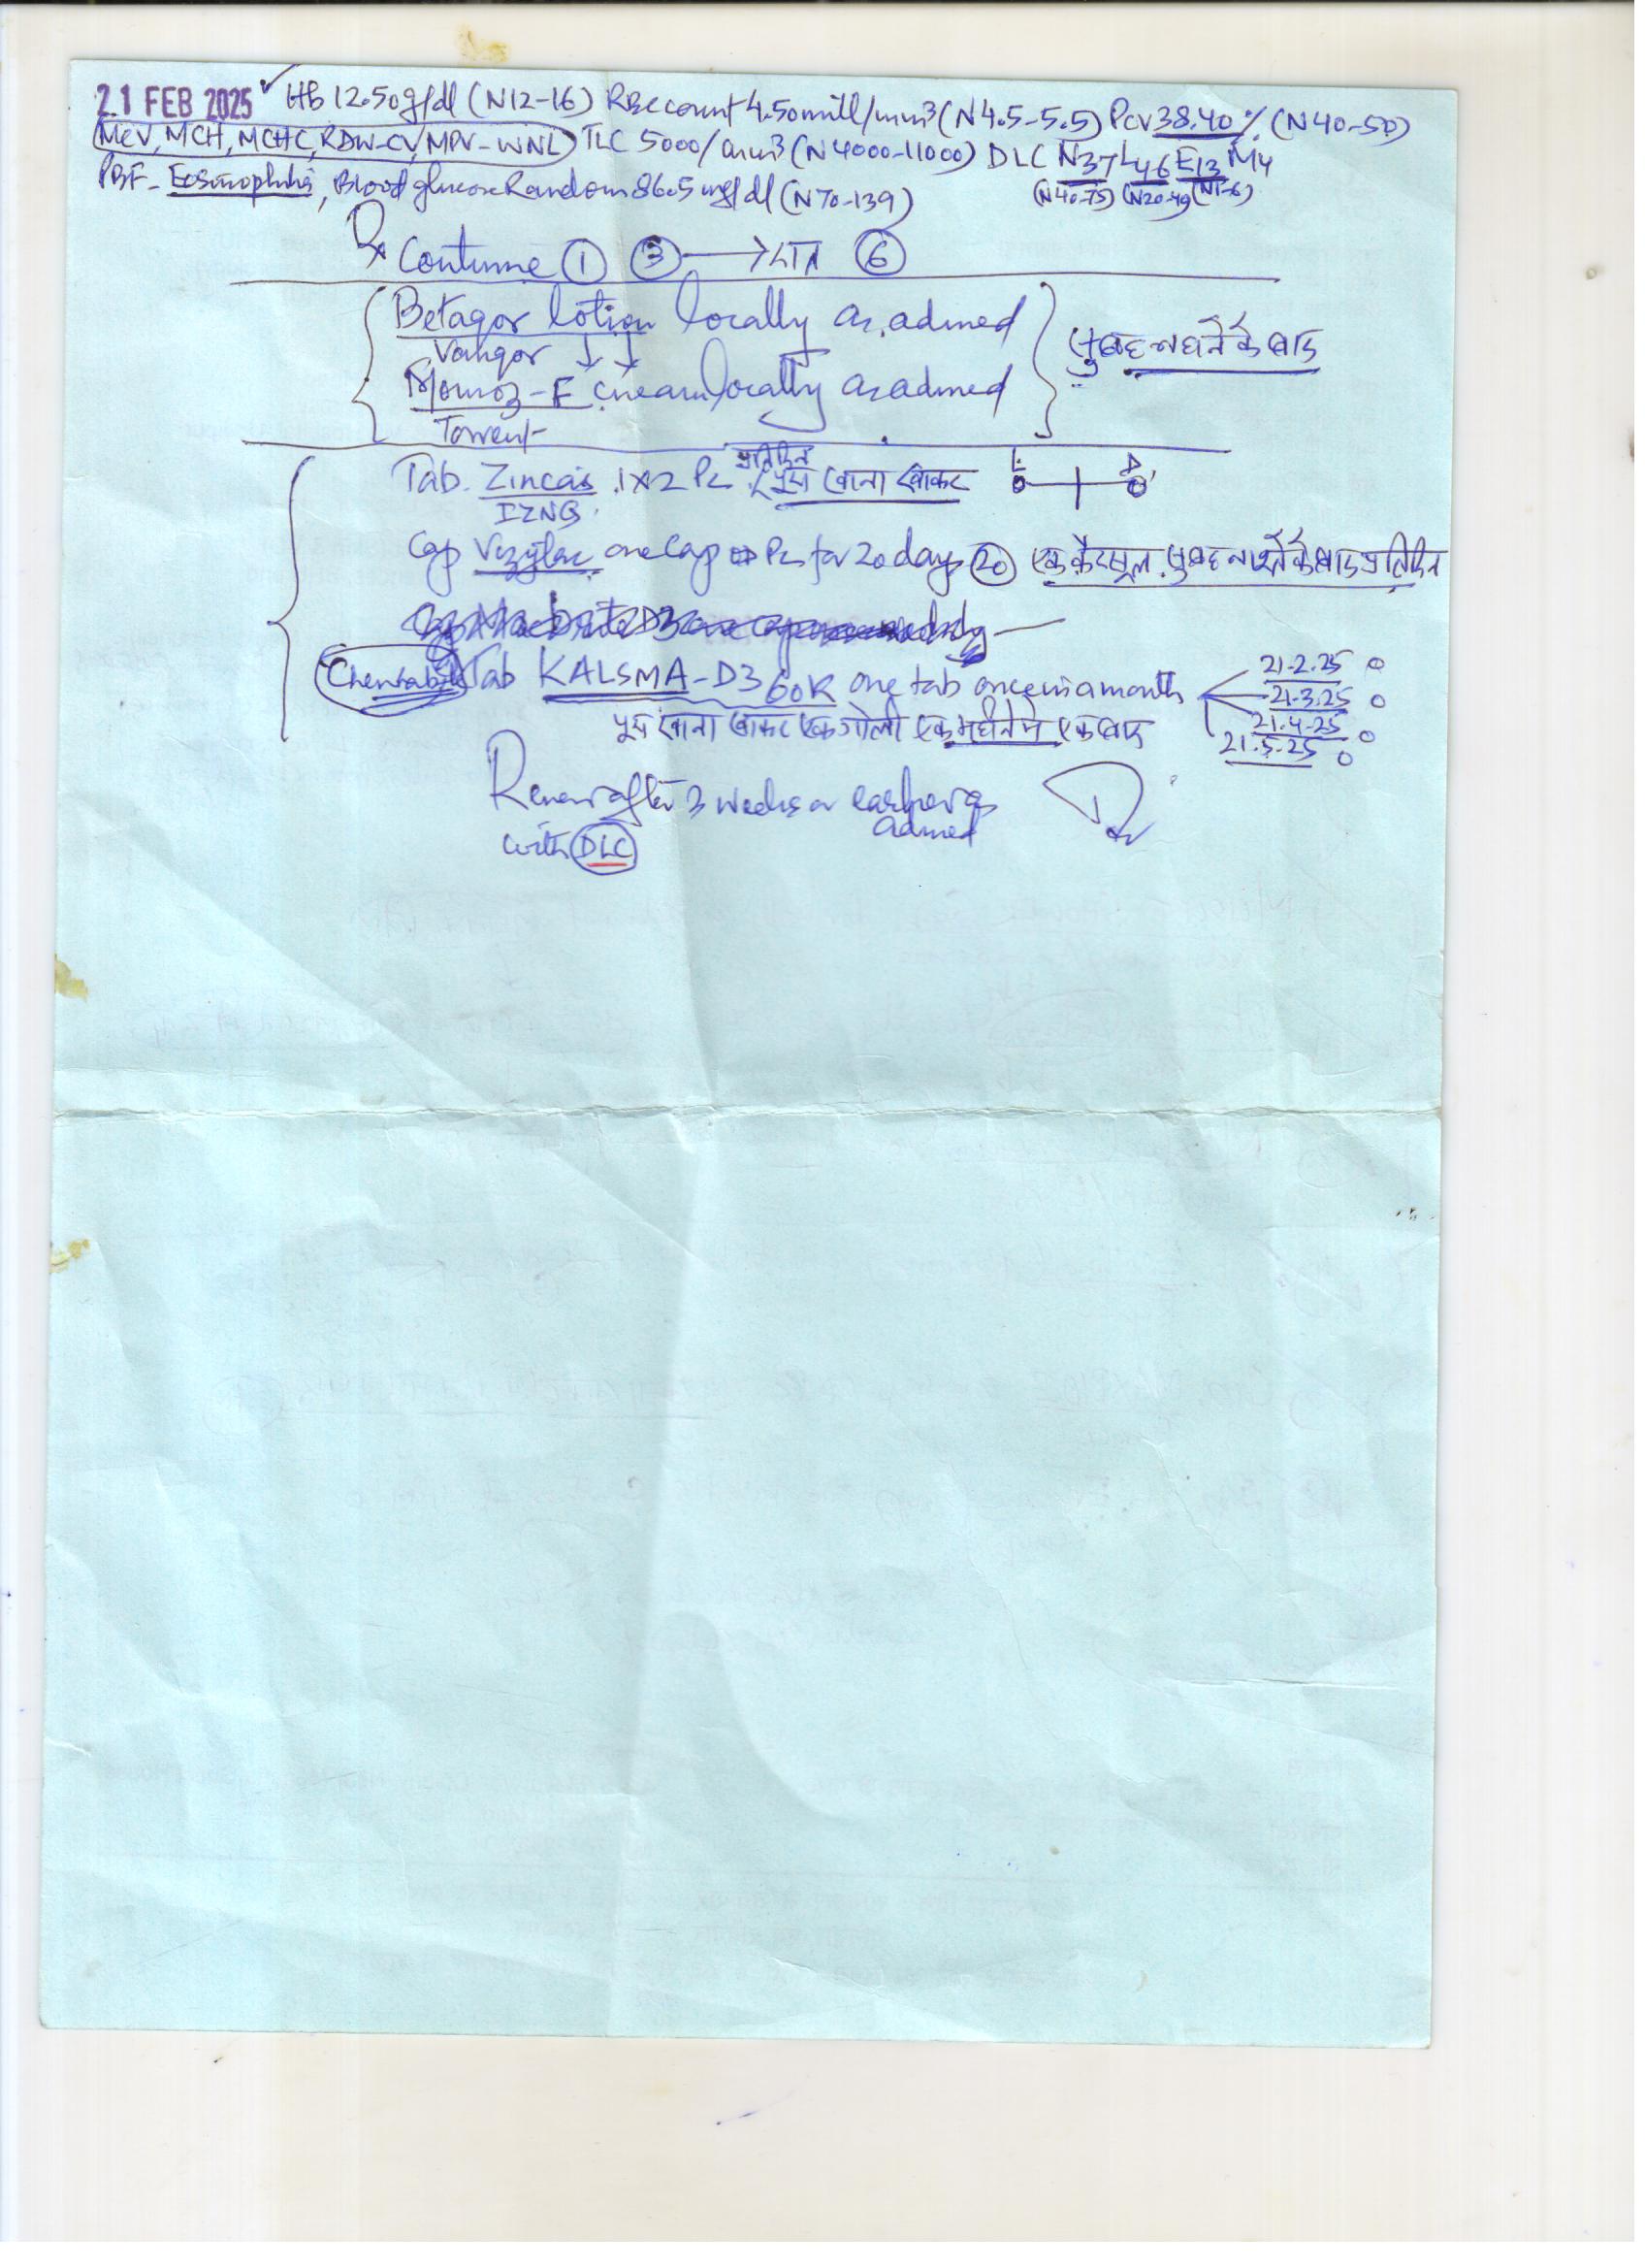 21 FEB 2025 ✓ Hb 12.50g/dl (N12-16) RBC count 4.50mill/mm³ (N4.5-5.5) PCV 38.40% (N40-50)
MCV, MCH, MCHC, RDW-CV, MPV-WNL TLC 5000/mm³ (N4000-11000) DLC N37 L46 E13 M4
(N40-75) (N20-49) (N1-6)
PBF- Eosinophilia, Blood glucose Random 86.5 mg/dl (N70-139)
Rx Continue ① ③ → ⑥
Betagor lotion locally as advised
सुबह नहाने के बाद
Momoz-F cream locally as advised
Torrent
Tab. 1x2 Pc प्रतिदिन खाना खाकर L D
Cap Vizylac one Cap Pc for 20 days ⑳ एक कैप्सूल सुबह नाश्ते के बाद प्रतिदिन
Chewable Tab KALSMA-D3 60K one tab once in a month 21-2-25
21-3-25
21-4-25
21-5-25
खाना खाकर एक गोली एक महीने में एक बार
Review after 3 weeks or earlier as advised
with DLC